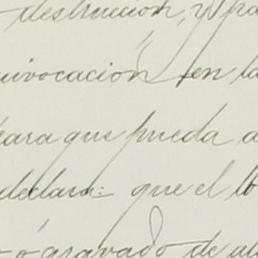 destrucción, y pa
uivocación en la
para que pueda a
declara: que el lo
ó gravado de al